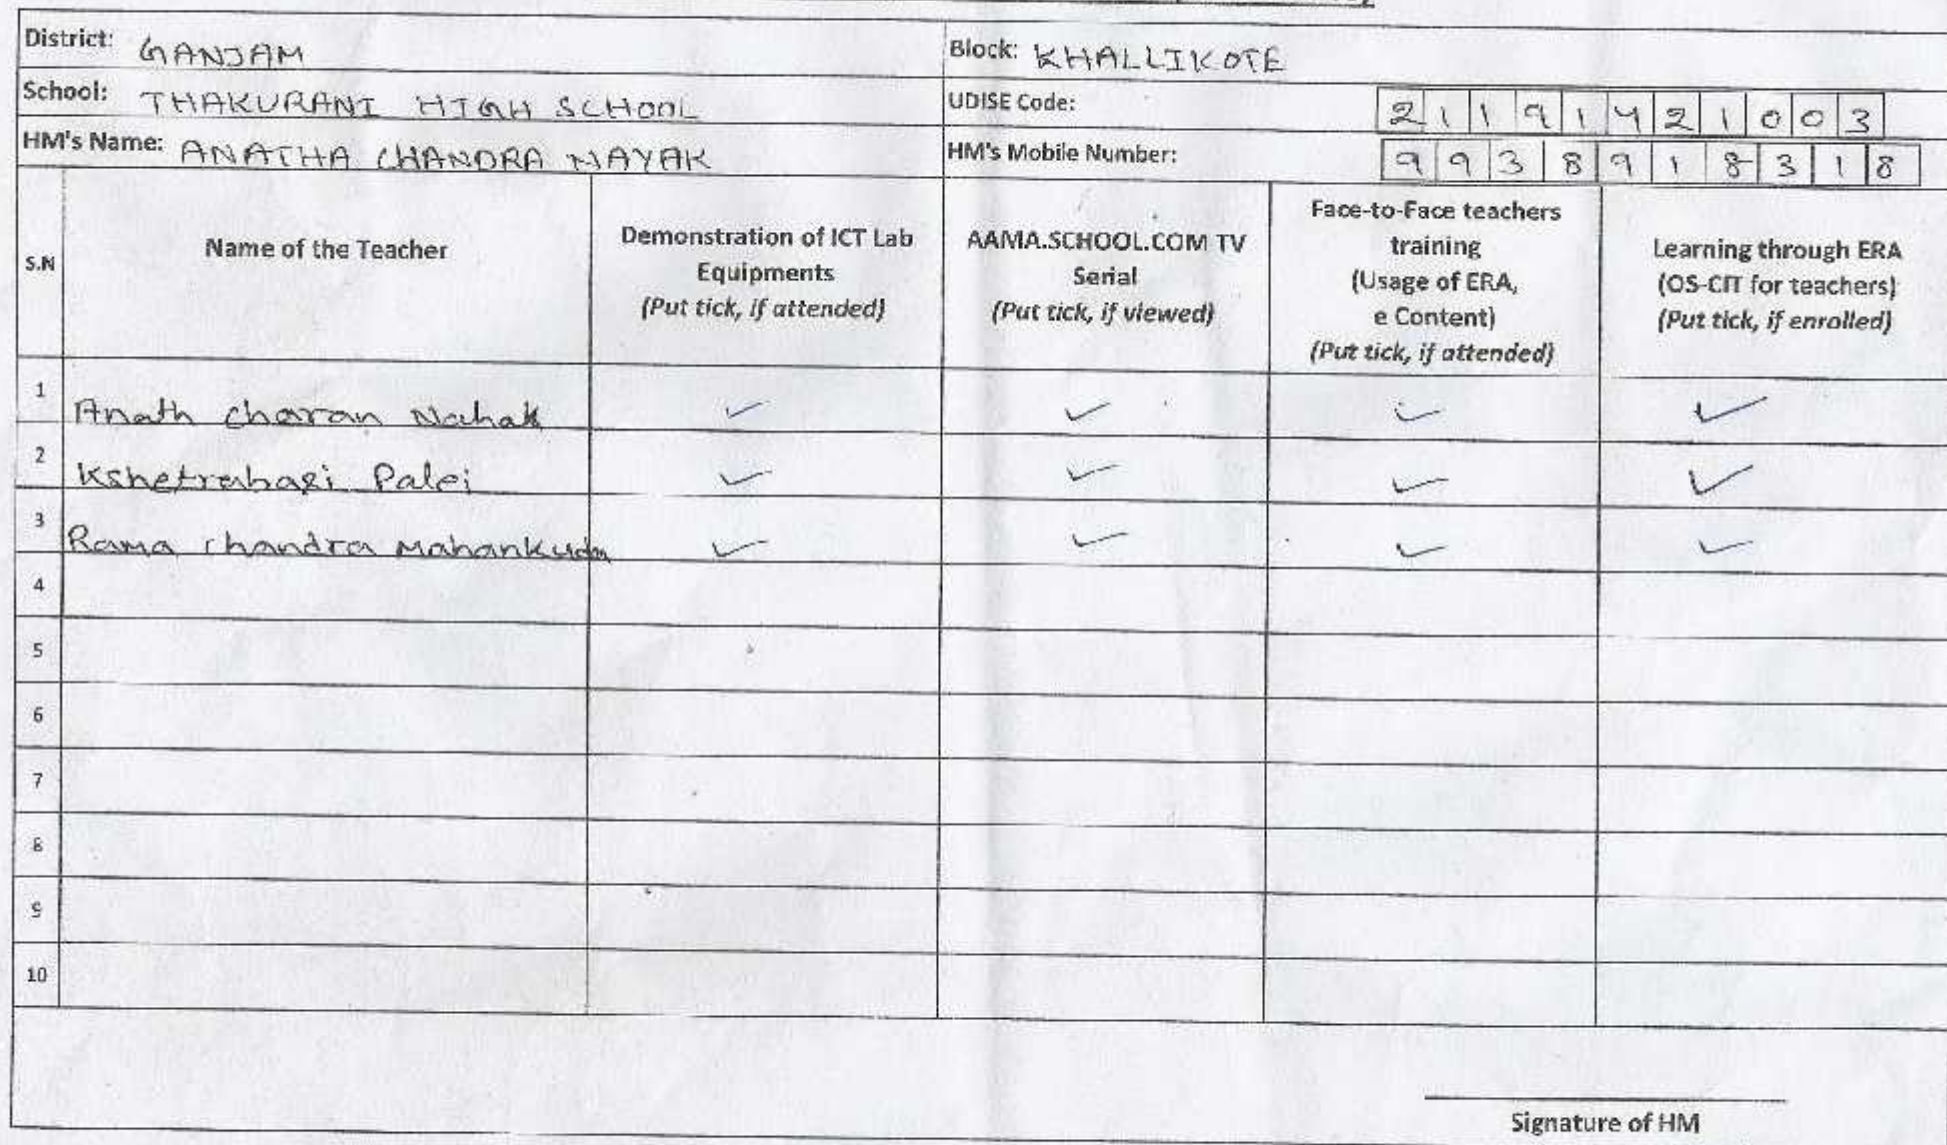 District: GANJAM Block: KHALLIKOTE
School: THAKURANI HIGH SCHOOL UDISE Code: 21191421003
HM's Name: ANATHA CHANDRA NAYAK HM's Mobile Number: 9938918318
S.N
Name of the Teacher
Demonstration of ICT Lab
Equipments
(Put tick, if attended)
AAMA.SCHOOL.COM TV
Serial
(Put tick, if viewed)
Face-to-Face teachers
training
(Usage of ERA,
e Content)
(Put tick, if attended)
Learning through ERA
(OS-CIT for teachers)
(Put tick, if enrolled)
1 Anath charan Nahak ✓ ✓ ✓ ✓
2 Kshetrabasi Palei ✓ ✓ ✓ ✓
3 Rama chandra Mahankuda ✓ ✓ ✓ ✓
4
5
6
7
8
9
10
Signature of HM